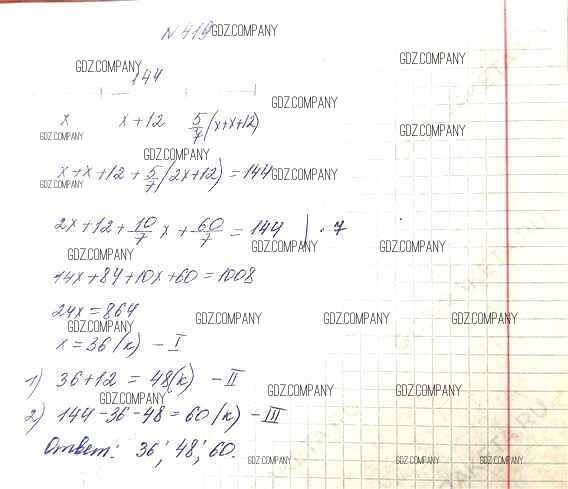 № 419 GDZ.COMPANY
GDZ.COMPANY
GDZ.COMPANY
144
GDZ.COMPANY
x x+12 5/7(x+x+12)
GDZ.COMPANY GDZ.COMPANY
GDZ.COMPANY
x+x+12+5/7(2x+12)=144 GDZ.COMPANY
GDZ.COMPANY
2x+12+10/7x+60/7=144 | ·7
GDZ.COMPANY GDZ.COMPANY GDZ.COMPANY
14x+84+10x+60=1008
24x=864
GDZ.COMPANY GDZ.COMPANY GDZ.COMPANY GDZ.COMPANY
x=36(к) – I
1) 36+12=48(к) – II
GDZ.COMPANY GDZ.COMPANY GDZ.COMPANY
2) 144-36-48=60(к) – III
Ответ: 36; 48; 60.
GDZ.COMPANY GDZ.COMPANY GDZ.COMPANY